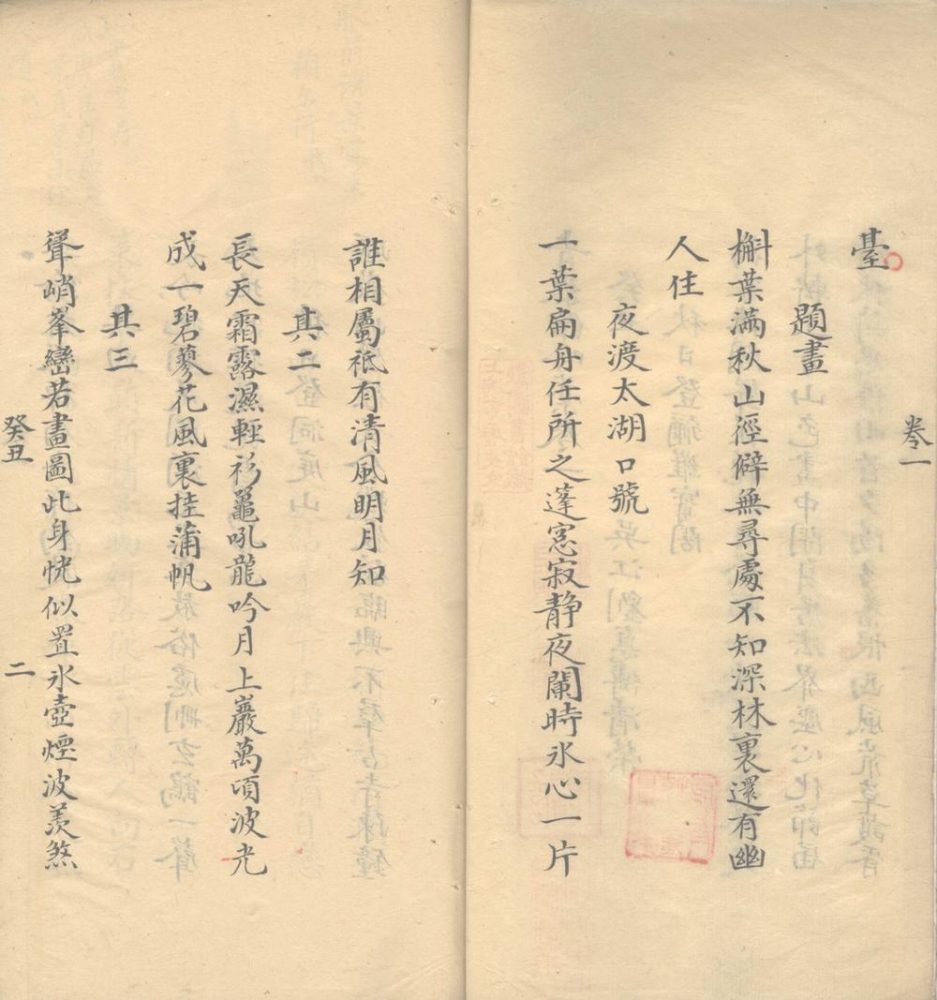 卷一
臺
題畫
槲葉滿秋山徑僻無尋處不知深林裏還有幽
人住
夜渡太湖口號
一葉扁舟任所之蓬窓寂静夜闌時氷心一片
誰相屬祗有清風明月知
其二
長天霜露濕輕衫鼍吼龍吟月上巖萬頃波光
成一碧蓼花風裏挂蒲帆
其三
聳峭峯巒若畫圖此身恍似置氷壺煙波羨煞
癸丑
二